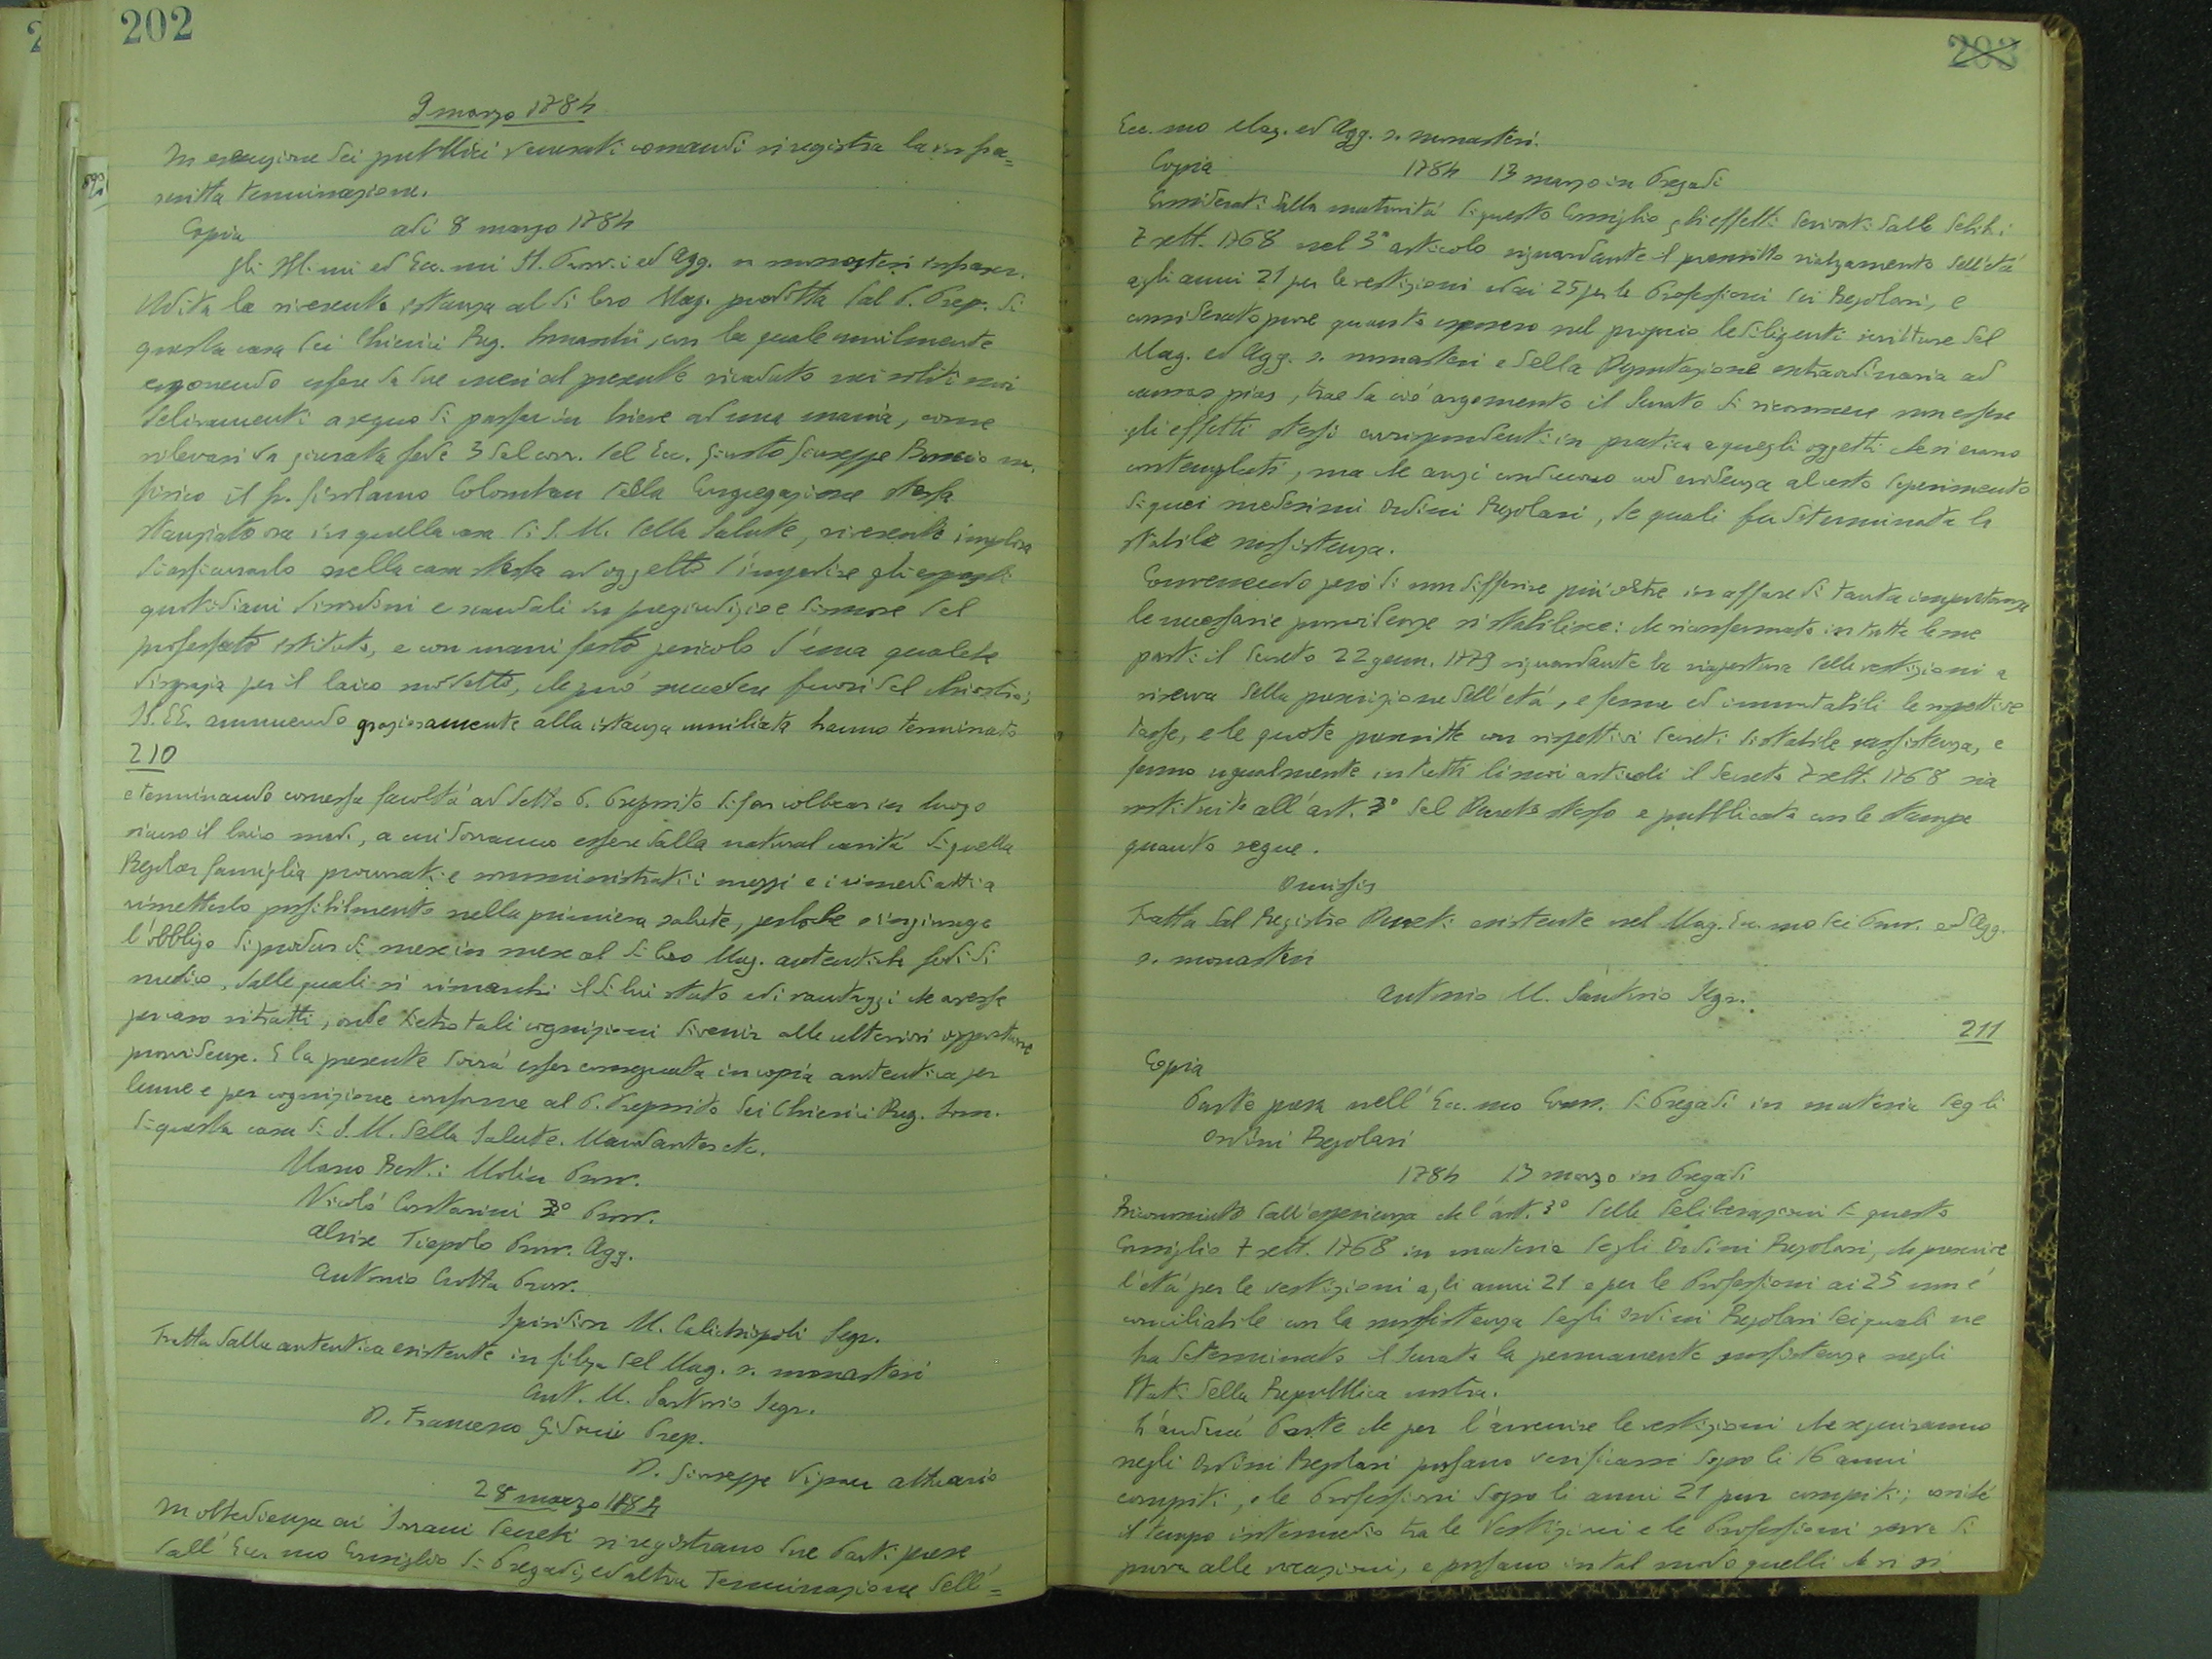 202
9 marzo 1784
In esecuzione dei pubblici venerati comandi si registra la infra=
scritta terminazione.
Copia adi 8 marzo 1784
gli Ill.mi ed Ecc.mi SS. Provv.i ed Agg. sopra monasteri infrascr.
Udita la riverente istanza al di loro Mag. prodotta dal P. Prep. di
questa casa dei Chierici Reg. Somaschi, con la quale umilmente
esponendo essere da due mesi al presente ricaduto nei soliti suoi
deliramenti a segno di passar in breve ad una mania, come
rilevasi da giurata fede 3 del corr. del Ecc. Giusto Giuseppe
fisico il fr. Girolamo Colomban della Congregazione stessa
stanziato ora in quella casa di S. M. della Salute, riverente implora
di assicurarlo nella casa stessa ad oggetto d'impedire gli esposti
quotidiani disordini e scandali in pregiudizio e disonore del
professato istituto, e con manifesto pericolo d'una qualche
disgrazia per il laico suddetto, che può succedere fuori del chiostro;
SS. EE. annuendo graziosamente alla istanza umiliata hanno terminato
210
e terminando concessa facoltà al detto P. Preposito di far collocar in luogo
sicuro il laico sud., a cui dovranno essere dalla natural carità di quella
Regolar famiglia procurati e somministrati i mezzi e i rimedi atti a
rimetterlo possibilmente nella primiera salute, perloché s'ingiunge
l'obbligo di produr di mese in mese al di loro Mag. autentiche fedi di
medico, dalle quali si rimarchi il di lui stato ed i vantaggi che avesse
per caso ritratti, onde dietro tali cognizioni divenir alle ulteriori opportune
provvidenze. E la presente dovrà esser consegnata in copia autentica per
lume e per cognizione conforme al P. Preposito dei Chierici Reg. Som.
di questa casa di S. M. della Salute. Mandantes etc.
Marco Molin Provv.
Nicolò Contarini 3° Provv.
Alvise Tiepolo Provv. Agg.
Antonio Crotta Provv.
Spiridion M. Calichiopoli Segr.
Tratta dalla autentica esistente in filza del Mag. s. monasteri
Ant. M. Santorio Segr.
D. Francesco Gidoni Prep.
D. Giuseppe Vipau attuario
28 marzo 1784
In obbedienza ai Sovrani decreti si registrano due Parti prese
dall'Ecc.mo Consiglio di Pregadi, ed altra Terminazione dell'=
203
Ecc.mo Mag. ed Agg. s. monasteri.
Copia 1784 13 marzo in Pregadi
Considerati dalla maturità di questo Consiglio gli effetti derivati dalle delib.i
7 sett. 1768 nel 3° articolo riguardante il prescritto rialzamento dell'età
agli anni 21 per le vestizioni ed ai 25 per le Professioni dei Regolari, e
considerato pure quanto esposero nel proprio le diligenti scritture del
Mag. ed Agg. s. monasteri e della Deputazione extraordinaria ad
causas pias, trae da ciò argomento il Senato di riconoscere non essere
gli effetti stessi corrispondenti in pratica a quegli oggetti che si erano
contemplati, ma che anzi conducono ad evidenza al certo deperimento
di quei medesimi Ordini Regolari, de quali fu determinata la
stabile sussistenza.
Convenendo però di non differire più oltre in affare di tanta importanza
le necessarie provvidenze si stabilisce: che riconfermato in tutte le sue
parti il decreto 22 genn. 1779 riguardante la riapertura delle vestizioni a
riserva della prescrizione dell'età, e ferme ed immutabili le rispettive
tasse, e le quote prescritte con rispettivi decreti di stabile sussistenza, e
fermo ugualmente in tutti li suoi articoli il decreto 7 sett. 1768 sia
sostituito all'art. 3° del Decreto stesso e pubblicato con le stampe
quanto segue.
Omissis
Tratta dal Registro Decreti esistente nel Mag. Ecc.mo dei Provv. ed Agg.
s. monasteri
Antonio M. Santorio Segr.
211
Copia
Parte presa nell'Ecc.mo Cons. di Pregadi in materia degli
Ordini Regolari
1784 13 marzo in Pregadi
Riconosciuto dall'esperienza che l'art. 3° delle deliberazioni di questo
Consiglio 7 sett. 1768 in materia degli Ordini Regolari, che prescrive
l'età per le vestizioni agli anni 21 e per le Professioni ai 25 non è
conciliabile con la sussistenza degli Ordini Regolari dei quali ne
ha determinato il Senato la permanente sussistenza negli
Stati della Repubblica nostra.
L'anderà Parte che per l'avvenire le vestizioni che seguiranno
negli Ordini Regolari possano verificarsi dopo li 16 anni
compiti, e le Professioni dopo li anni 21 pur compiti; cosiché
il tempo intermedio tra le Vestizioni e le Professioni serva di
prova alle vocazioni, e possano in tal modo quelli che si di